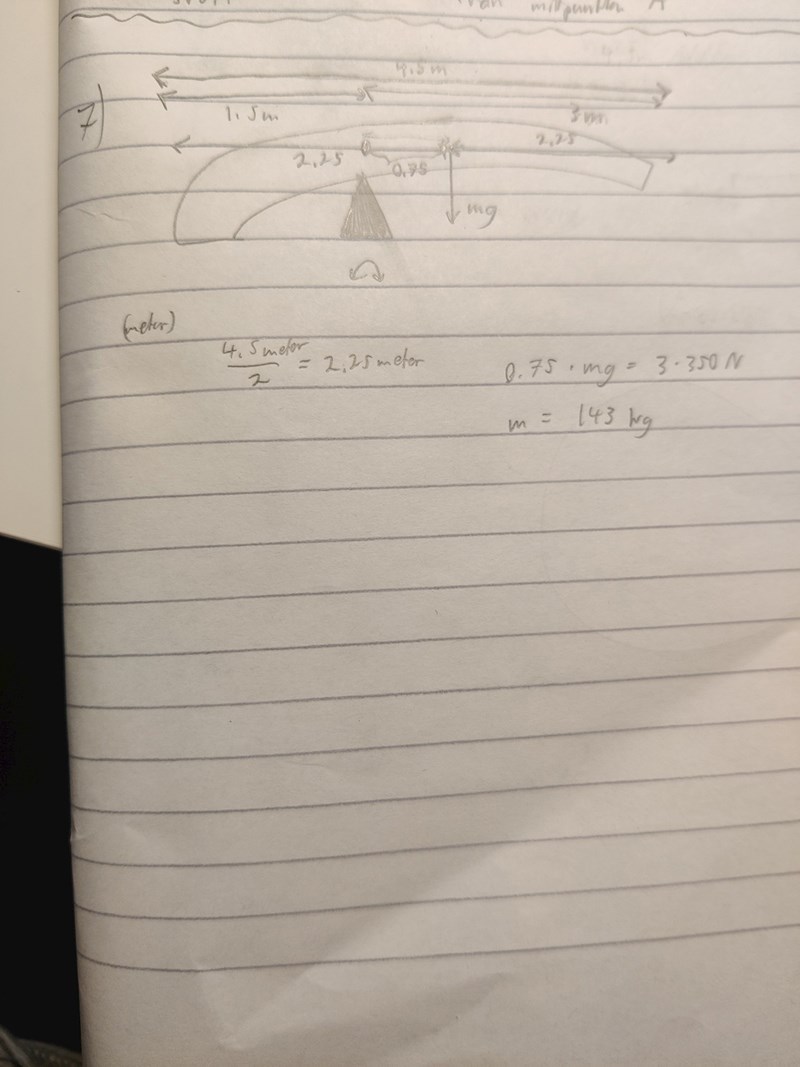 från mittpunkten A
7)
4,5m
1.5m 3m
2,25 0,75 2,25
mg
(meter)
4.5meter/2 = 2,25meter
0.75 · mg = 3·350 N
m = 143 kg